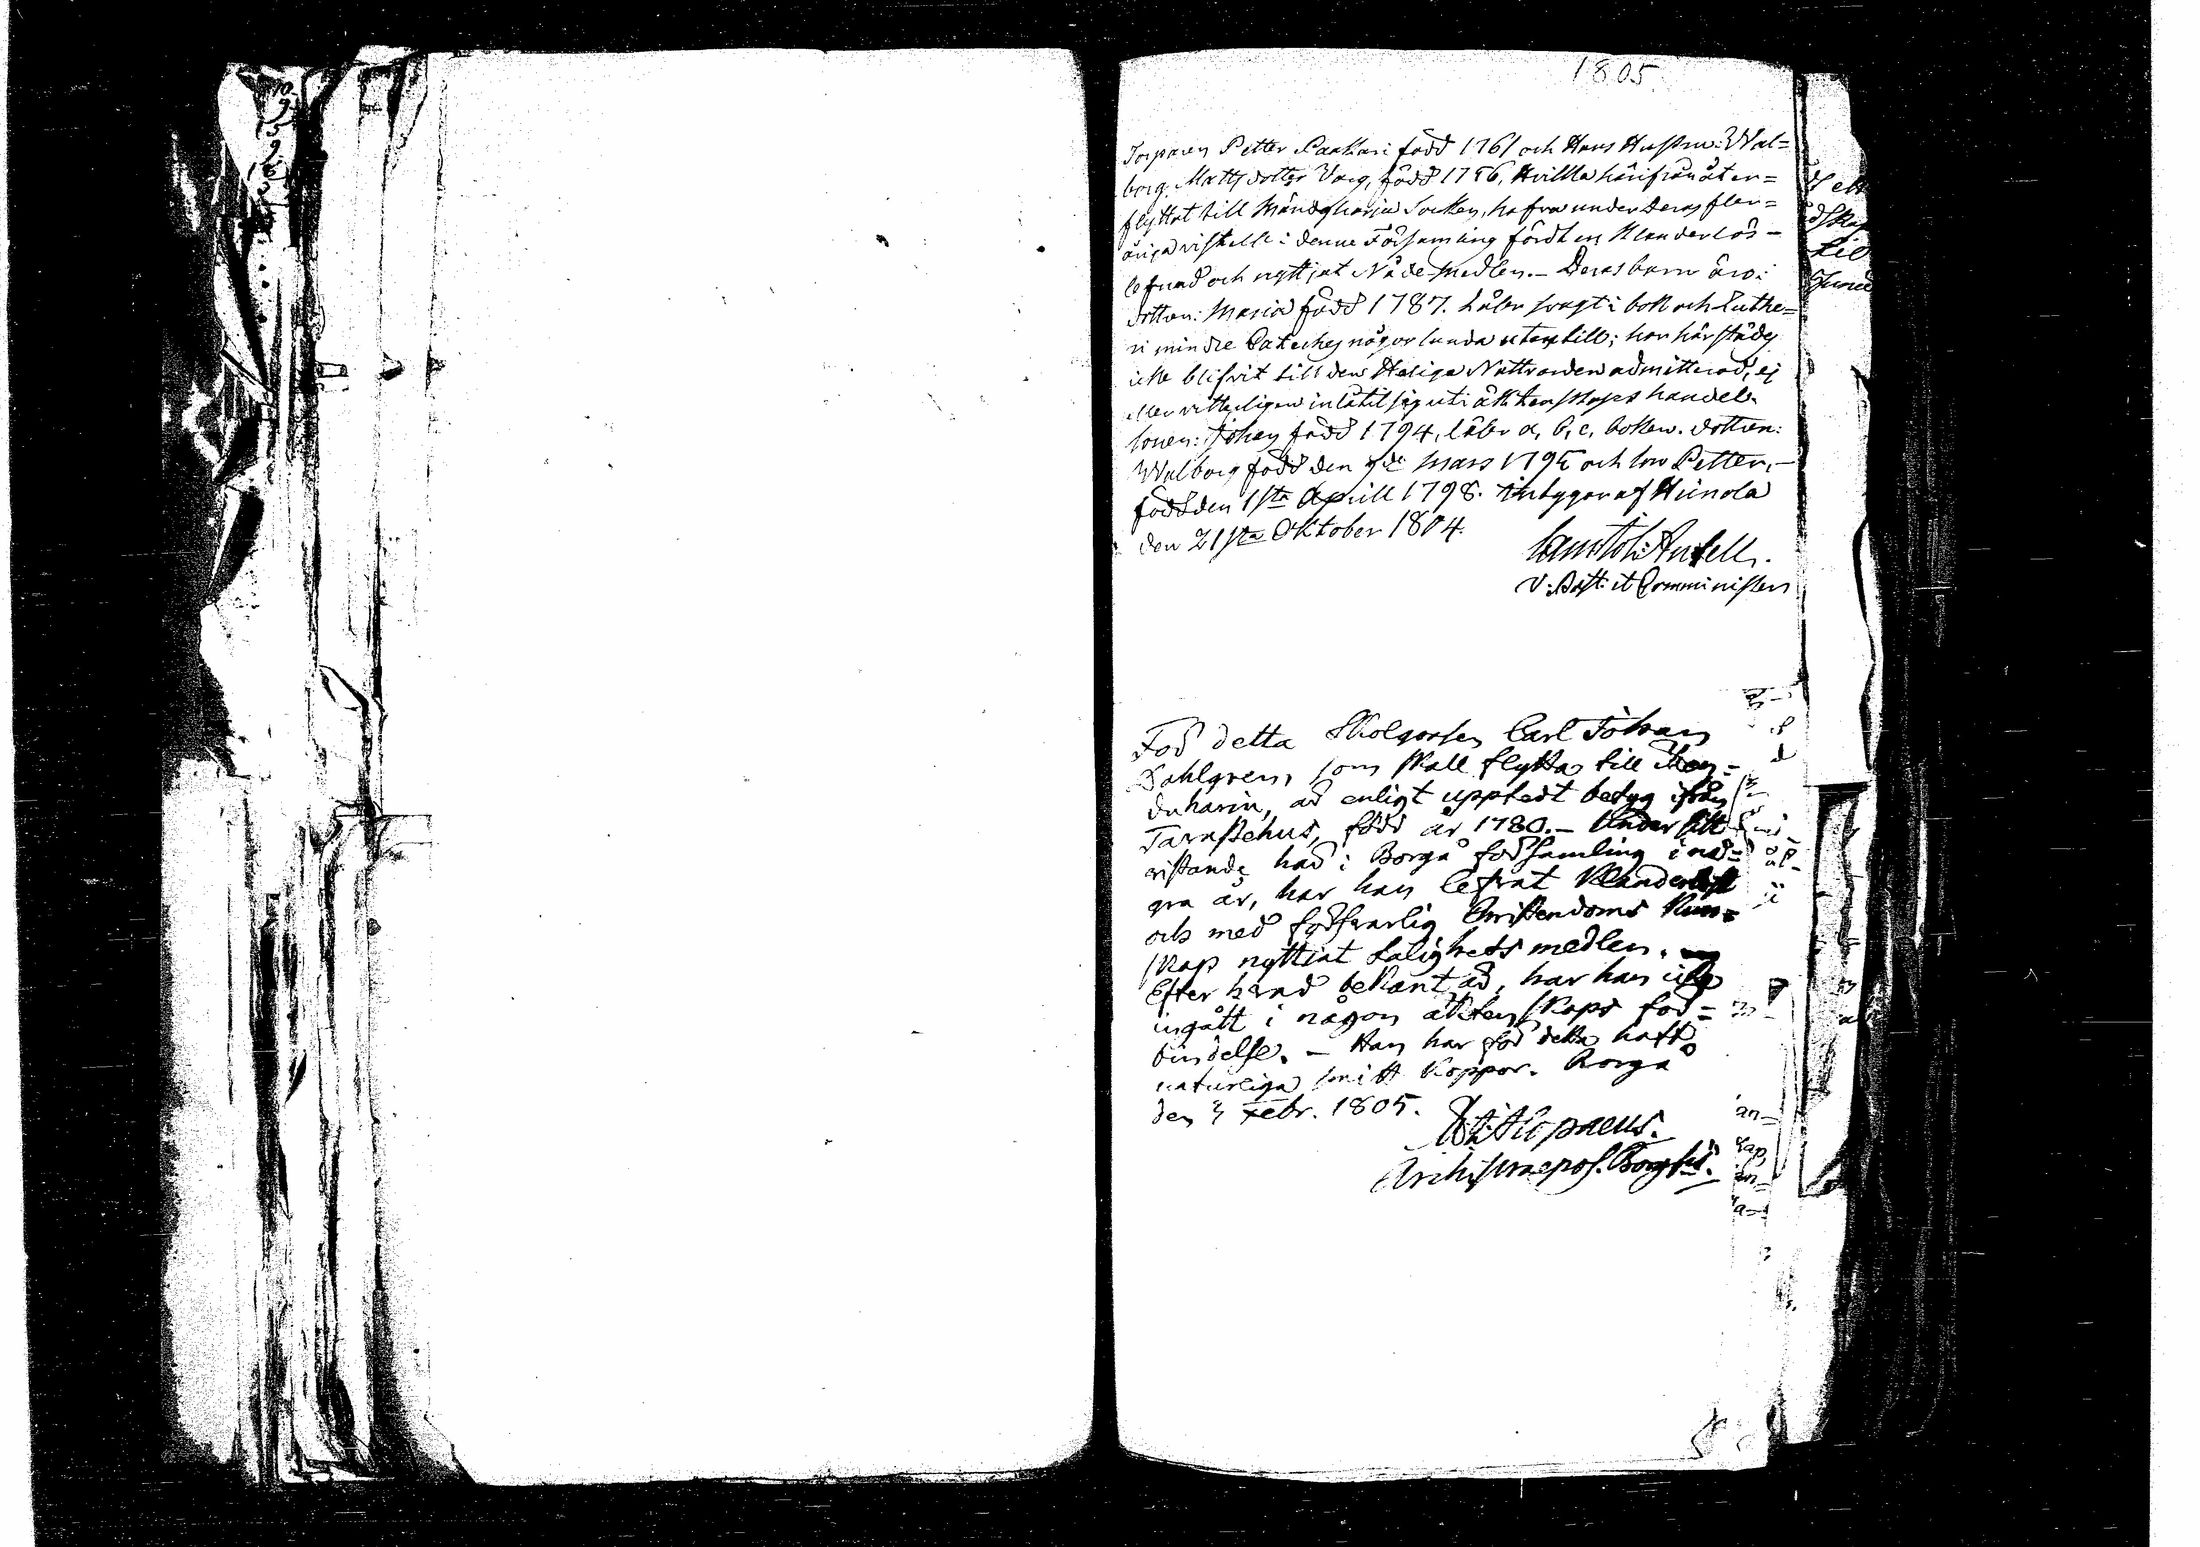 1805
Torparen Petter Paakari född 1761 och Hans Hustru: Wal=
borg Matts dotter Varg, född 1756, hvilka härifrån åter=
flyttat till Mändsharju Socken, hafva under deras fler=
åriga vistelse i denna Församling fördt en klanderlös
lefnad och nyttjat Nåde-medlen. – Deras barn äro:
dottren: Maria född 1787. Läser svagt i bok och Luthe=
ri mindre Cateches någorlunda utantill; har härstädes
icke blifvit till den Heliga Nattvarden admitterad, ej
eller vetterligen inlåtit sig uti äktenskaps handel.
Sonen: Johan född 1794, läser a, b, c, boken. Dottren:
Walborg född den 7de Mars 1795 och son Petter,
född den 1sta Aprill 1798. intygar af Hiinola
den 21sta Oktober 1804.
Antell.
V. Past: et Comminister
För detta Skolgossen Carl Johan
Dahlgren, som skall flytta till Men=
duharju, är enligt uppteet betyg ifrån
Tavastehus, född år 1780. – Under sitt
vistande här i Borgå församling i nå=
gra år, har han lefvat klanderlöst
och med försvarlig Christendoms kun=
skap nyttiat Salighets medlen.
Efter hvad bekant är, har han icke
ingått i någon äktenskaps för=
bindelse. – Han har för detta haft
naturliga smitt koppor. Borgå
den 4 Febr. 1805.
Alopaeus.
Archipraepos. Borg